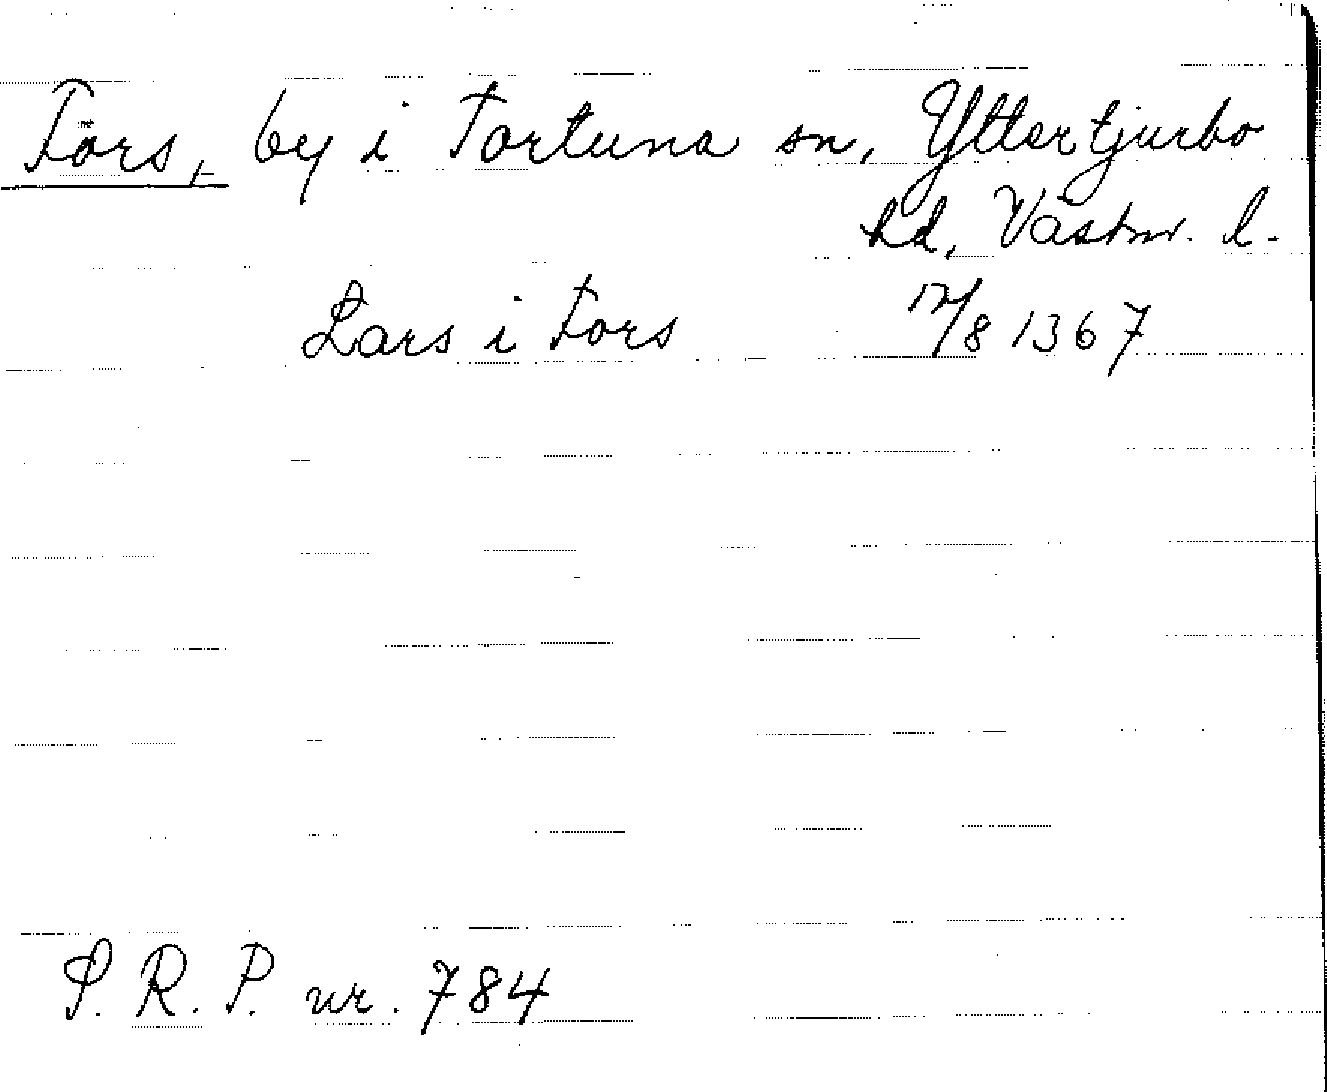 Förs, by i Tortuna sn, Yttertjurbo
hd, Västm. l.
Lars i Fors 12/8 1367
S. R. P. nr. 784